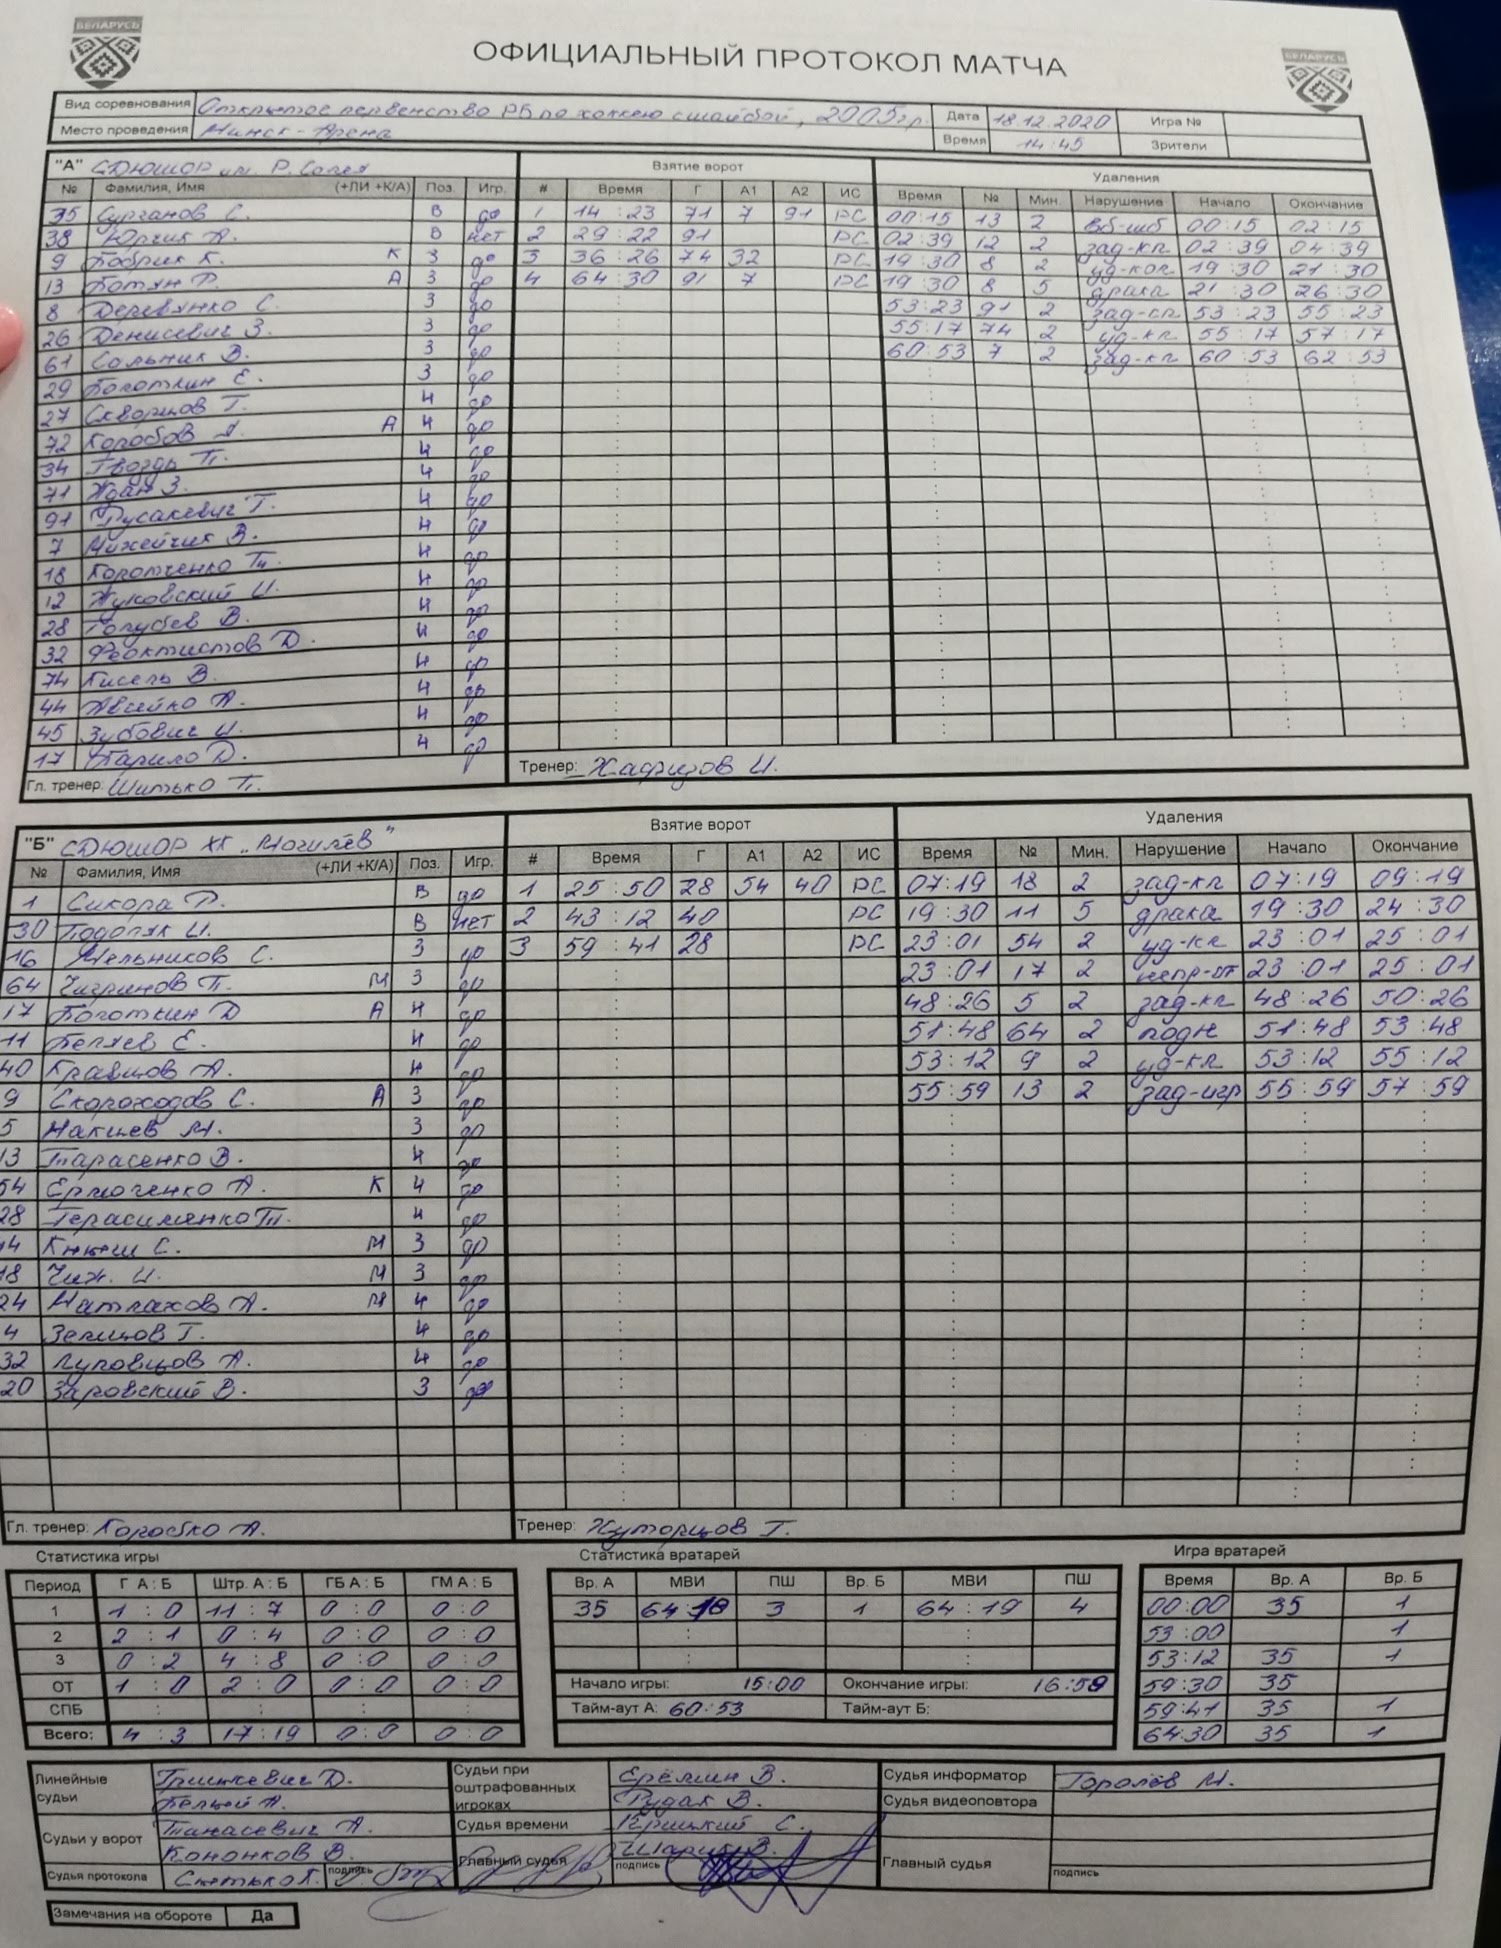 БЕЛАРУСЬ
БЕЛАРУСЬ
ОФИЦИАЛЬНЫЙ ПРОТОКОЛ МАТЧА
Вид соревнования Открытое первенство РБ по хоккею с шайбой, 2005 г.р. Дата 18.12.2020 Игра №
Место проведения Минск-Арена Время 14:45 Зрители
"А" СДЮШОР Взятие ворот Удаления
№ Фамилия, Имя (+ЛИ +К/А) Поз. Игр. # Время Г А1 А2 ИС Время № Мин. Нарушение Начало Окончание
35 Сурганов С. В да 1 14:23 71 7 91 РС 00:15 13 2 00:15 02:15
38 Юрчик А. В нет 2 29:22 91 РС 02:39 12 2 зад-кл 02:39 04:39
9 Бобрик К. К З да 3 36:26 74 32 РС 19:30 8 2 19:30 21:30
13 Ботян Р. А З да 4 64:30 91 7 РС 19:30 8 5 драка 21:30 26:30
8 Деревянко С. З да 53:23 91 2 53:23 55:23
26 Денисевич З. З да 55:17 74 2 уд-кл 55:17 57:17
61 Сольник В. З да 60:53 7 2 зад-кл 60:53 62:53
29 Болоткин Е. З да
27 Скворцов Т. Н да
72 Коробов А Н да
34 Гвоздь П. Н да
71 Ждан З. Н да
91 Русакевич Т. Н да
7 Михейчик В. Н да
18 Коротченко Н да
12 Жуковский И. Н да
28 Голубев В. Н да
32 Феоктистов Д. Н да
74 Кисель В. Н да
44 Авсейко А. Н да
45 Зубович И. Н да
17 Гарило Д. Н да
Гл. тренер: Шитько П. Тренер: Хафизов И.
"Б" СДЮШОР ХК „Могилёв" Взятие ворот Удаления
№ Фамилия, Имя (+ЛИ +К/А) Поз. Игр. # Время Г А1 А2 ИС Время № Мин. Нарушение Начало Окончание
1 Сикора Р. В да 1 25:50 28 54 40 РС 07:19 18 2 зад-кл 07:19 09:19
30 Подоляк И. В нет 2 43:12 40 РС 19:30 11 5 драка 19:30 24:30
16 Мельников С. З да 3 59:41 28 РС 23:01 54 2 уд-кл 23:01 25:01
64 Чигринов П. М З да 23:01 17 2 23:01 25:01
17 Болоткин Д А Н да 48:26 5 2 зад-кл 48:26 50:26
11 Беляев Е. Н да 51:48 64 2 подн 51:48 53:48
40 Кравцов А. Н да 53:12 9 2 уд-кл 53:12 55:12
9 Скороходов С. А З да 55:59 13 2 зад-игр 55:59 57:59
5 Макцев М. З да
13 Тарасенко В. Н да
54 Ермоченко А. К Н да
28 Герасименко П. Н да
14 Князш С. М З да
18 Чиж. И. М З да
24 Матлахов А. М Н да
4 Зелицов Г. Н да
32 Луповцов А. Н да
20 Заровский В. З да
Гл. тренер: Коробко А. Тренер: Хуторцов Г.
Статистика игры Статистика вратарей Игра вратарей
Период Г А:Б Штр. А:Б ГБ А:Б ГМ А:Б Вр. А МВИ ПШ Вр. Б МВИ ПШ Время Вр. А Вр. Б
1 1:0 11:7 0:0 0:0 35 3 1 64:19 4 00:00 35 1
2 2:1 0:4 0:0 0:0 53:00 1
3 0:2 4:8 0:0 0:0 53:12 35 1
ОТ 1:0 2:0 0:0 0:0 Начало игры: 15:00 Окончание игры: 59:30 35
СПБ : : : : Тайм-аут А: 60:53 Тайм-аут Б: 59:41 35 1
Всего: 4:3 17:19 0:0 0:0 64:30 35 1
Линейные судьи Гришкевич Д. Судьи при оштрафованных игроках Ерёмин В. Судья информатор Горолёв М.
Белый А. Рудак В. Судья видеоповтора
Судьи у ворот Танасевич А. Судья времени Крицкий С.
Кононков В. Главный судья подпись Главный судья подпись
Судья протокола подпись
Замечания на обороте Да